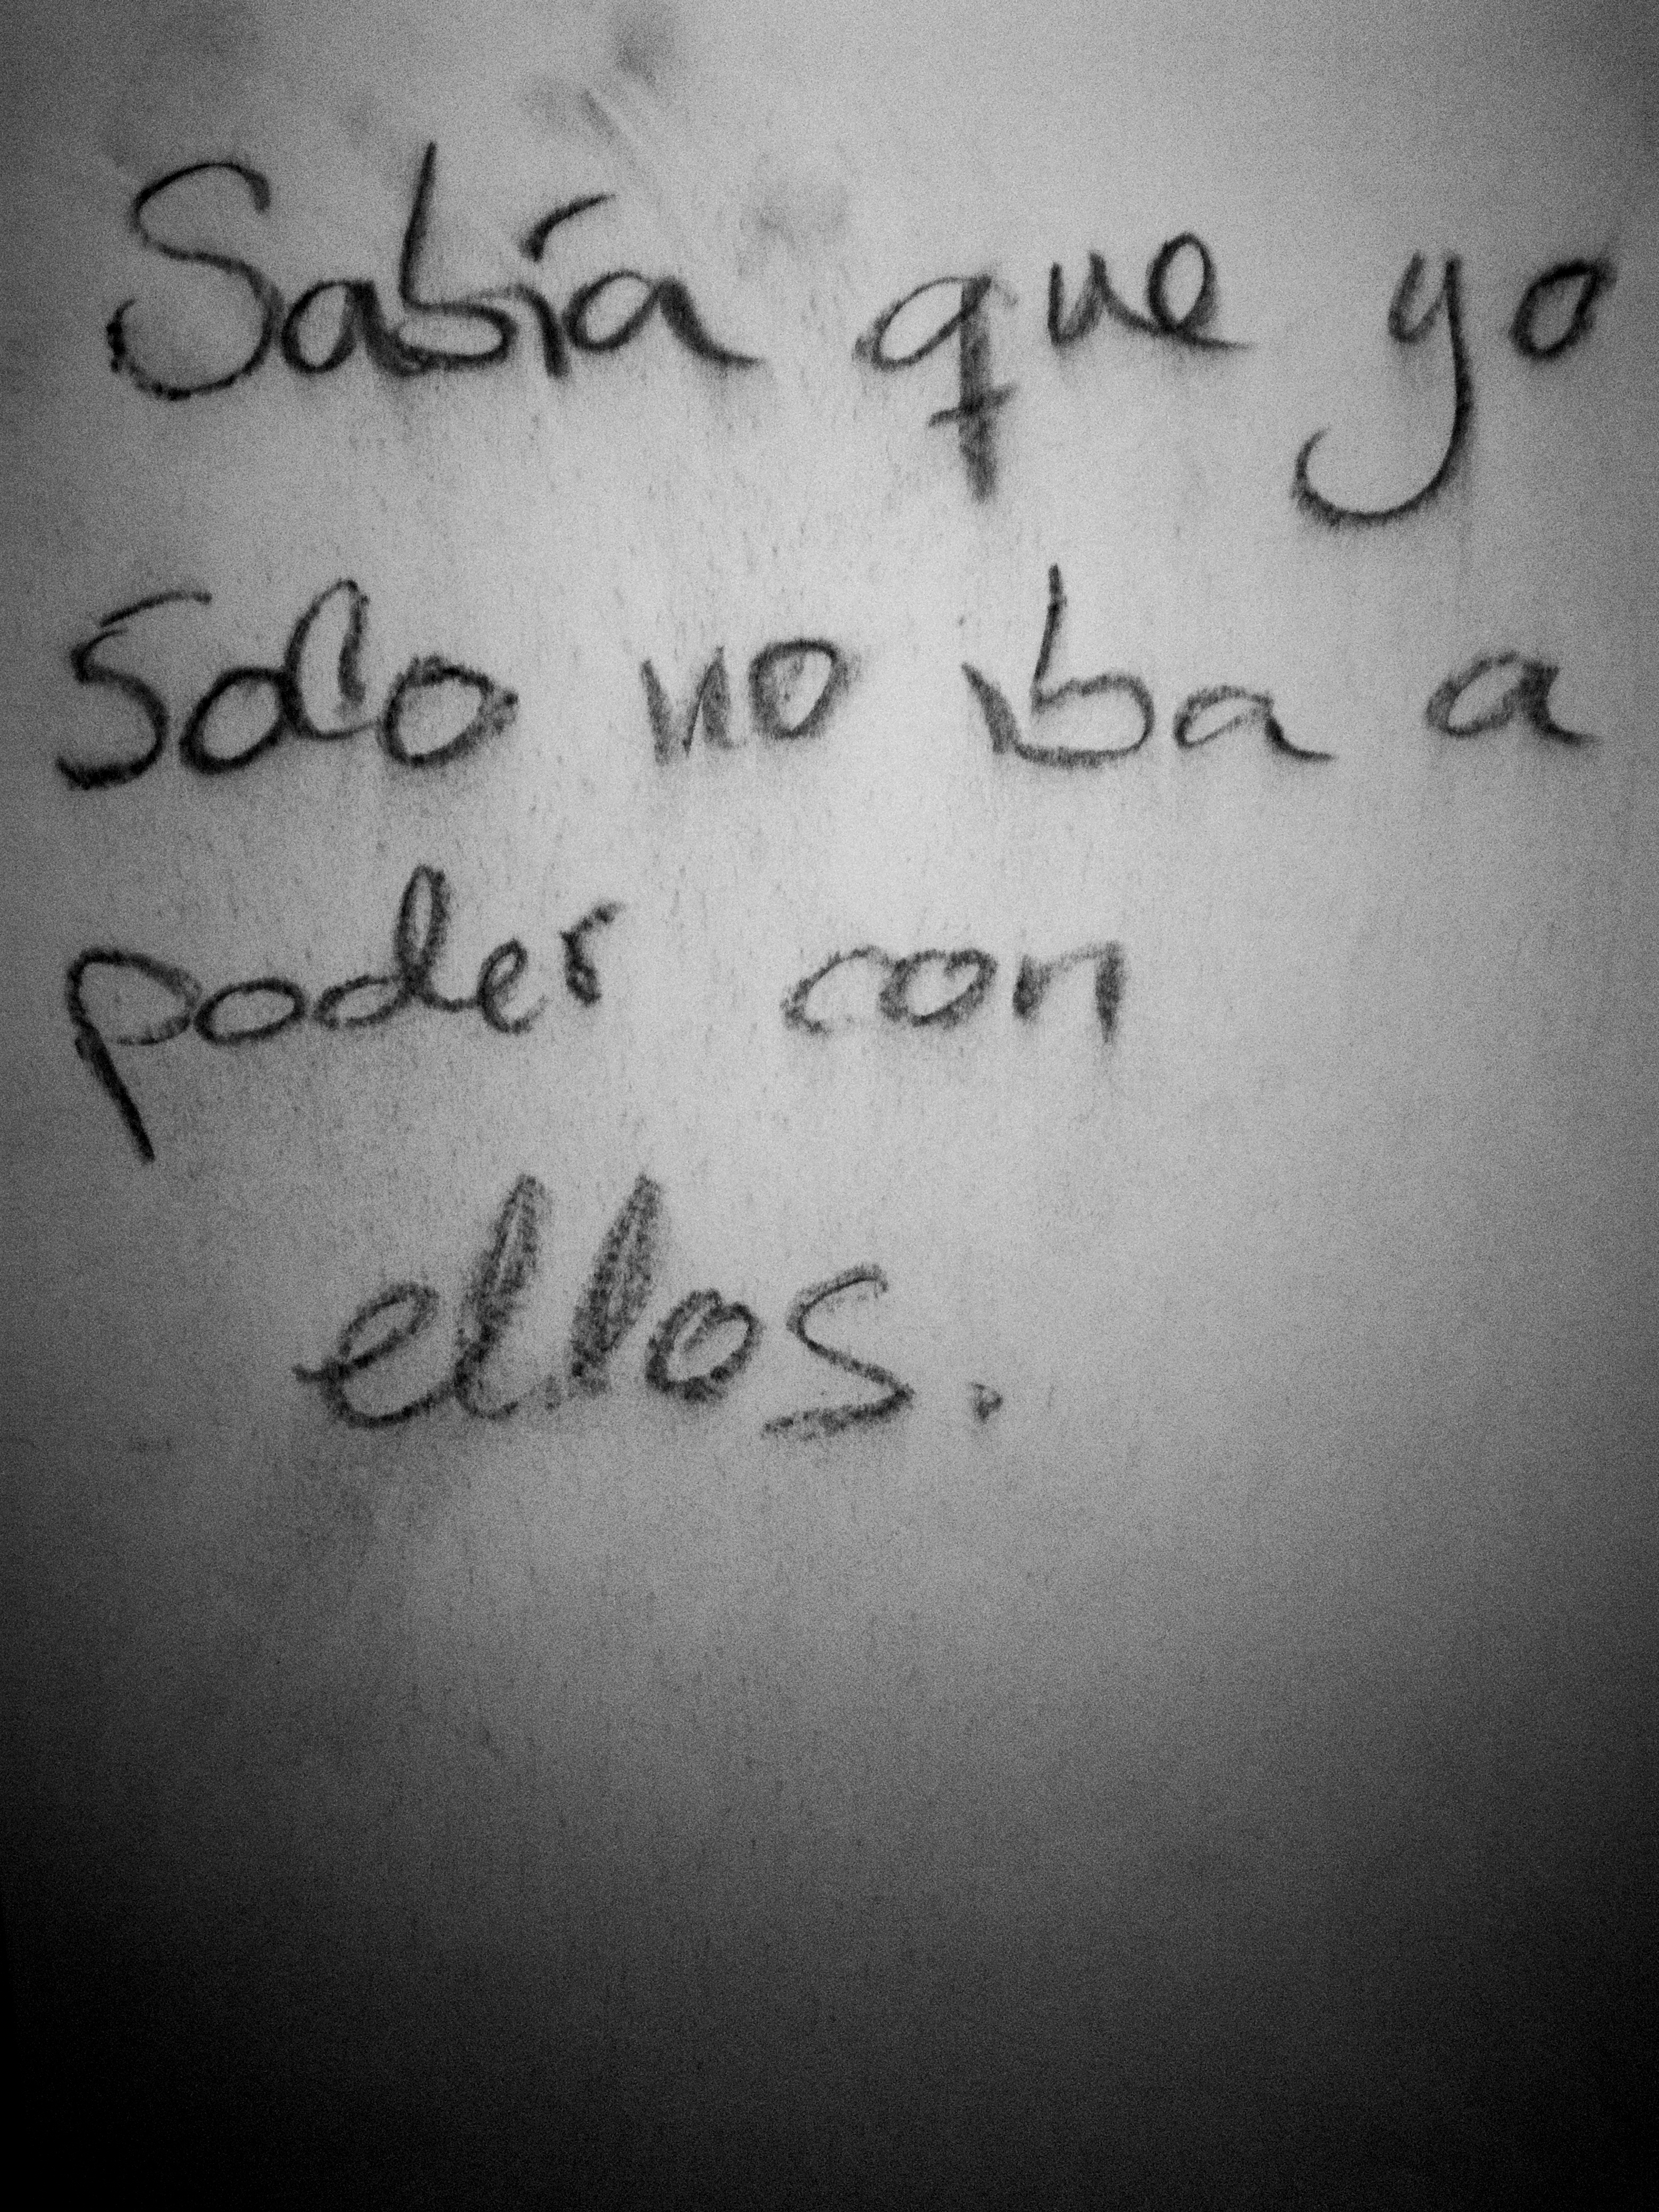 Sabía que yo
Solo no iba a
poder con
ellos.